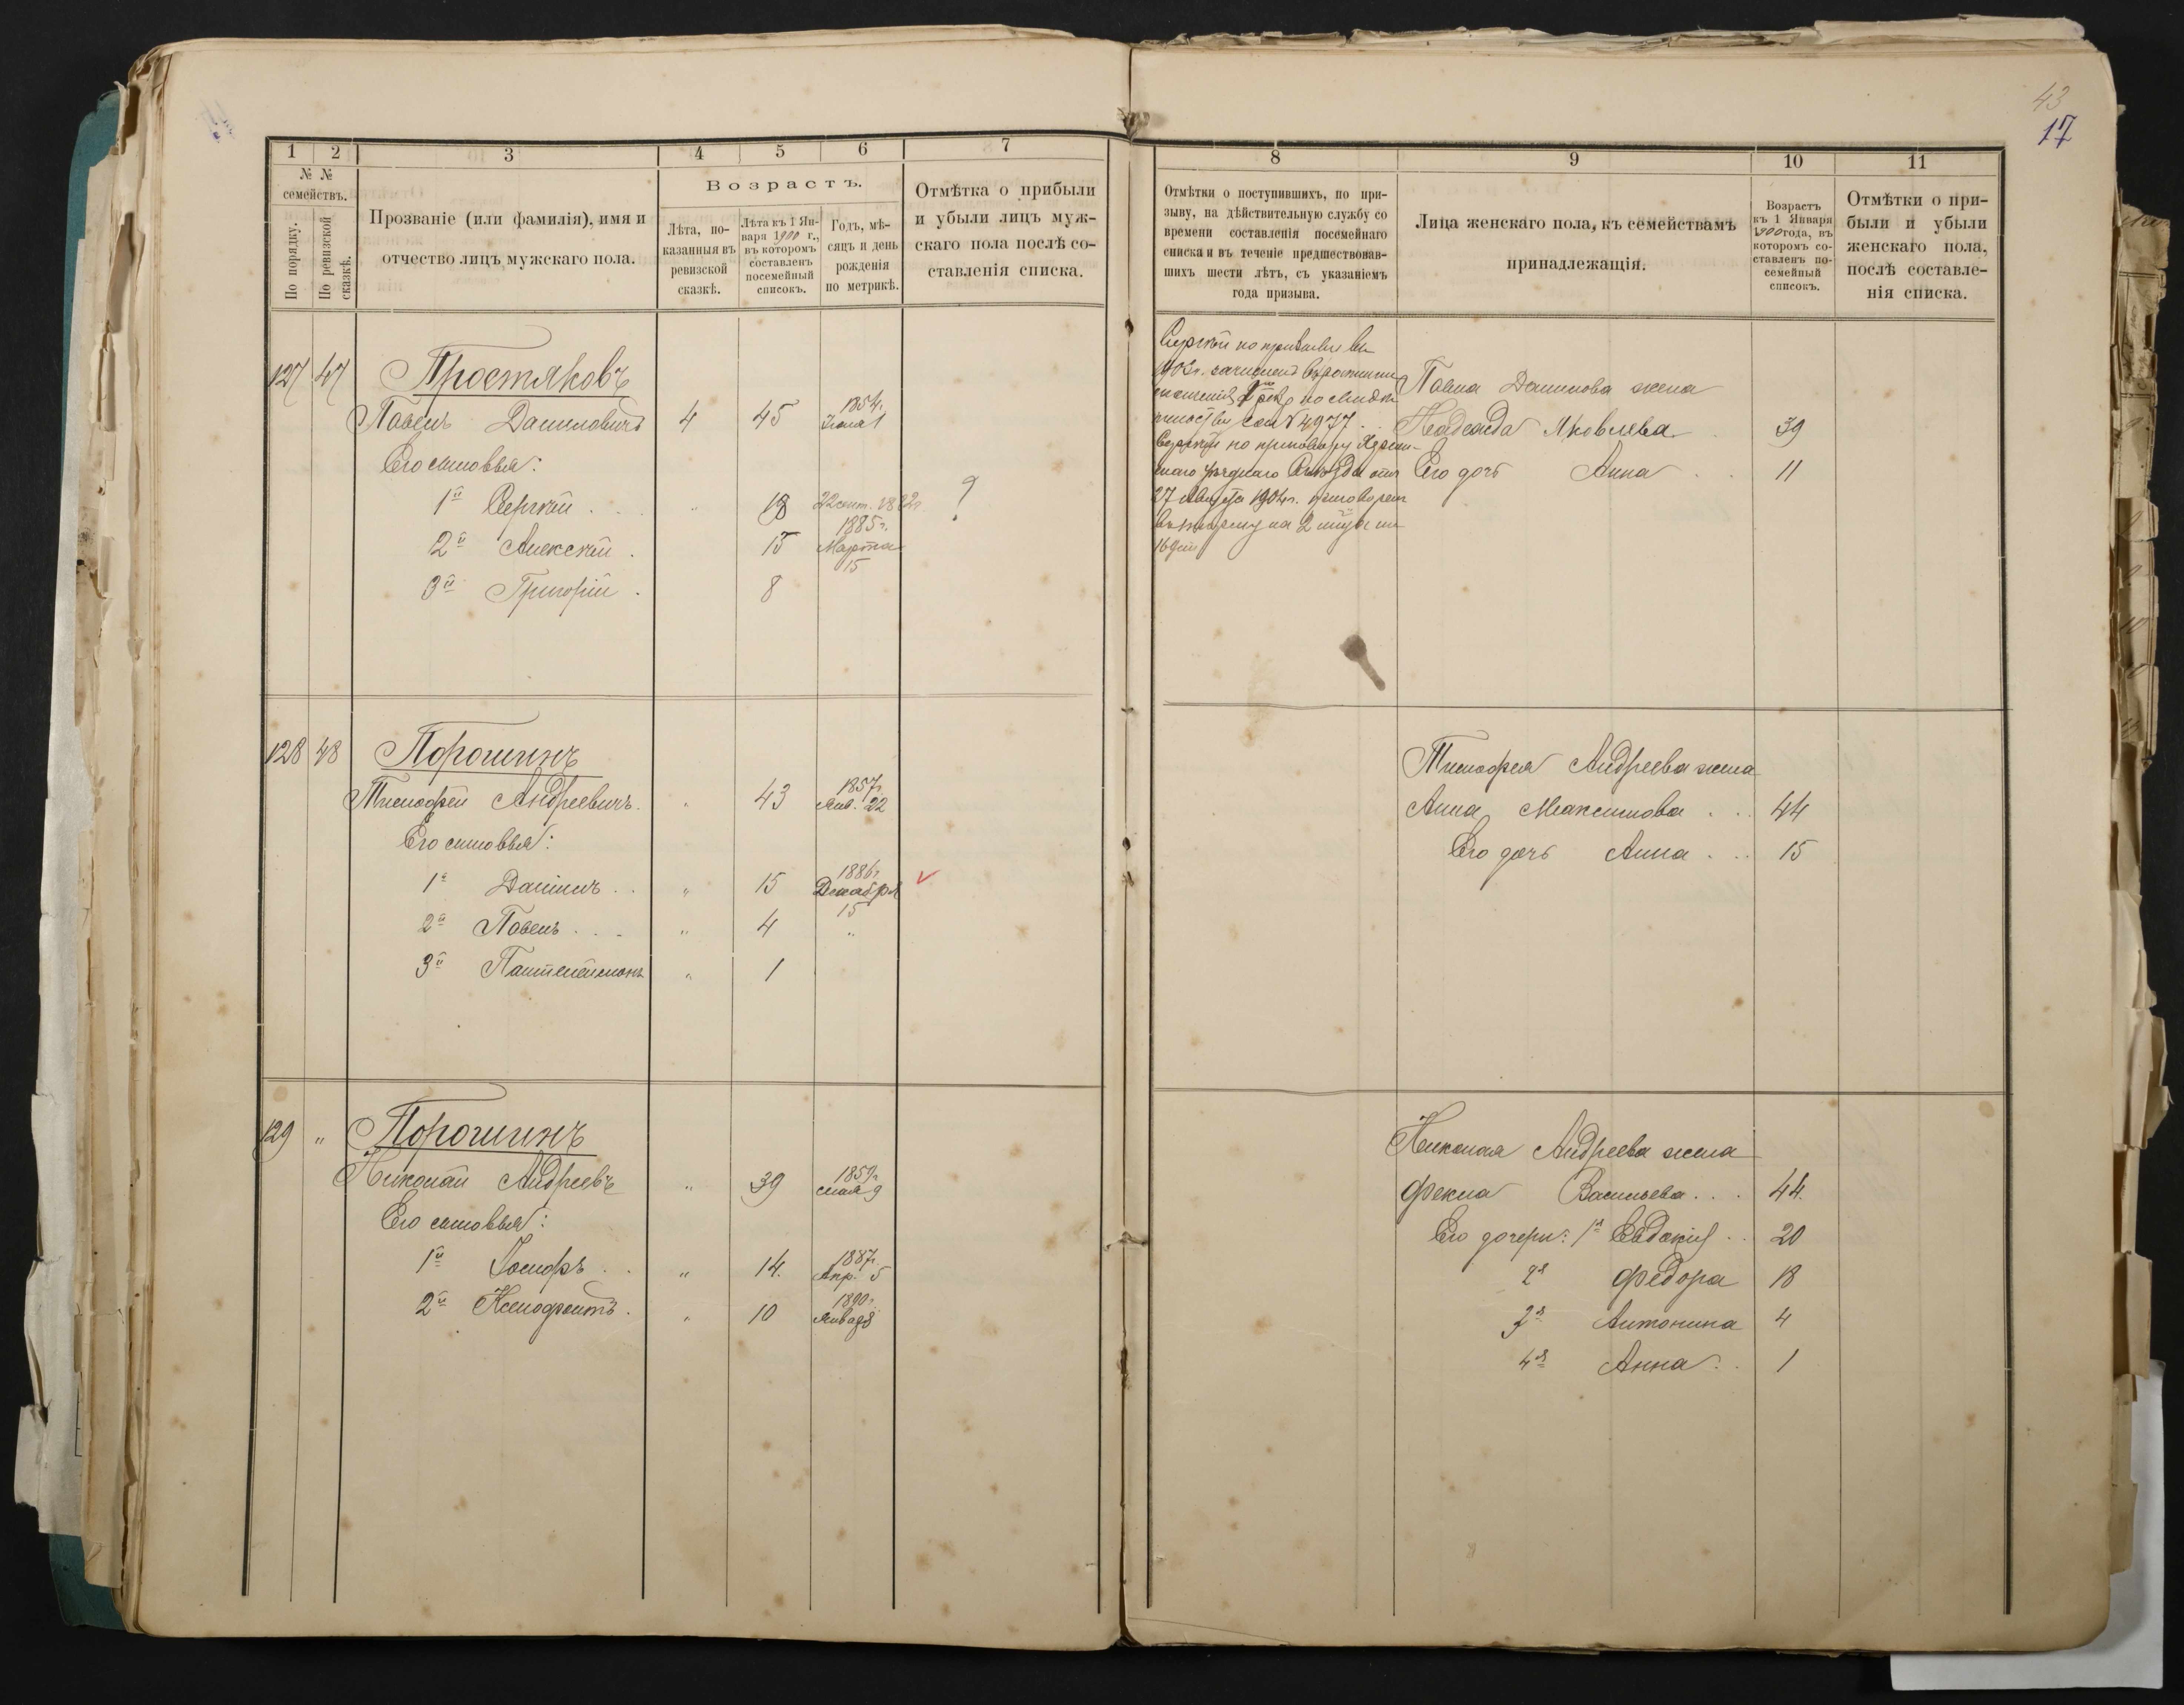 43
17
1
2
3
4
5
6
7
№ №
семействъ.
По порядку.
По ревизской сказкѣ.
Прозваніе (или фамилія), имя и
отчество лицъ мужскаго пола.
Возрастъ.
Лѣта, по-
казанныя въ
ревизской
сказкѣ.
Лѣта къ 1 Ян-
варя 1900 г.,
въ которомъ
составленъ
посемейный
списокъ.
Годъ, мѣ-
сяцъ и день
рожденія
по метрикѣ.
Отмѣтка о прибыли
и убыли лицъ муж-
скаго пола послѣ со-
ставленія списка.
127 47 Простяковъ
Павелъ Даниловичъ 4 45 1854г. Іюня 1
Его сыновья:
1й Сергѣй . . „ 18 22 сент. 1882г. ?
2й Алексѣй . 15 1885г. Марта 15
3й Григорій . 8
128 48 Порошинъ
Тимофей Андреевичъ. „ 43 1857г. Янв. 22
Его сыновья:
1й Даніилъ . . „ 15 1886г. Декабря 15
2й Павелъ . . . „ 4 „
3й Пантелеймонъ „ 1
129 „ Порошинъ
Николай Андреевъ „ 39 1859г. мая 9
Его сыновья:
1й Іосифъ . . „ 14. 1887г. Апр. 5
2й Ксенофонтъ . „ 10 1890г. Янв. 28
8
9
10
11
Отмѣтки о поступившихъ, по при-
зыву, на дѣйствительную службу со
времени составленія посемейнаго
списка и въ теченіе предшествовав-
шихъ шести лѣтъ, съ указаніемъ
года призыва.
Лица женскаго пола, къ семействамъ
принадлежащія.
Возрастъ
къ 1 Января
1900 года, въ
которомъ со-
ставленъ по-
семейный
списокъ.
Отмѣтки о при-
были и убыли
женскаго пола,
послѣ составле-
нія списка.
Сергѣй по призыву въ
1903г. зачисленъ въ ратники
ополченія
4977.
Сергѣй по приговору
уѣзднаго Съѣзда отъ
27 Августа 1904г. приговоренъ
въ тюрьму на 2 мѣсяца
16 дней
Павла Данилова жена
Надежда Яковлева. 39
Его дочь Анна . . 11
Тимофея Андреева жена
Анна Максимова . . . 44
Его дочь Анна . . . 15
Николая Андреева жена
Фекла Васильева . . . 44.
Его дочери: 1я Евдокія . . 20
2я Федора 18
3я Антонина 4
4я Анна . . 1